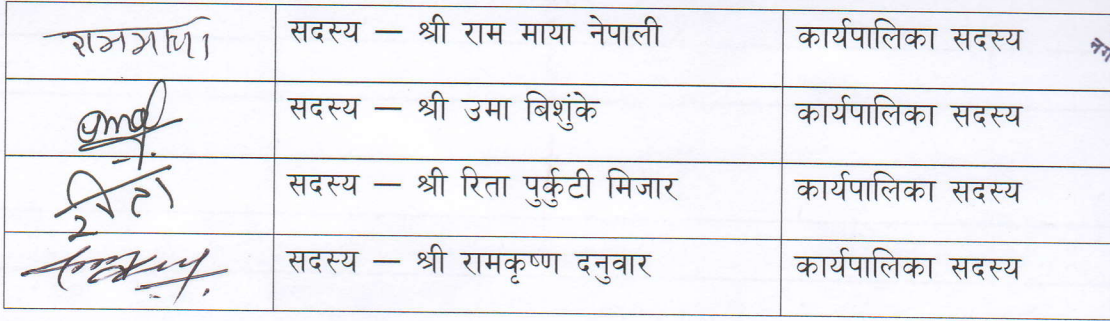 राममाया सदस्य – श्री राम माया नेपाली कार्यपालिका सदस्य
सदस्य – श्री उमा बिशुंके कार्यपालिका सदस्य
रिता सदस्य – श्री रिता पुर्कुटी मिजार कार्यपालिका सदस्य
सदस्य – श्री रामकृष्ण दनुवार कार्यपालिका सदस्य